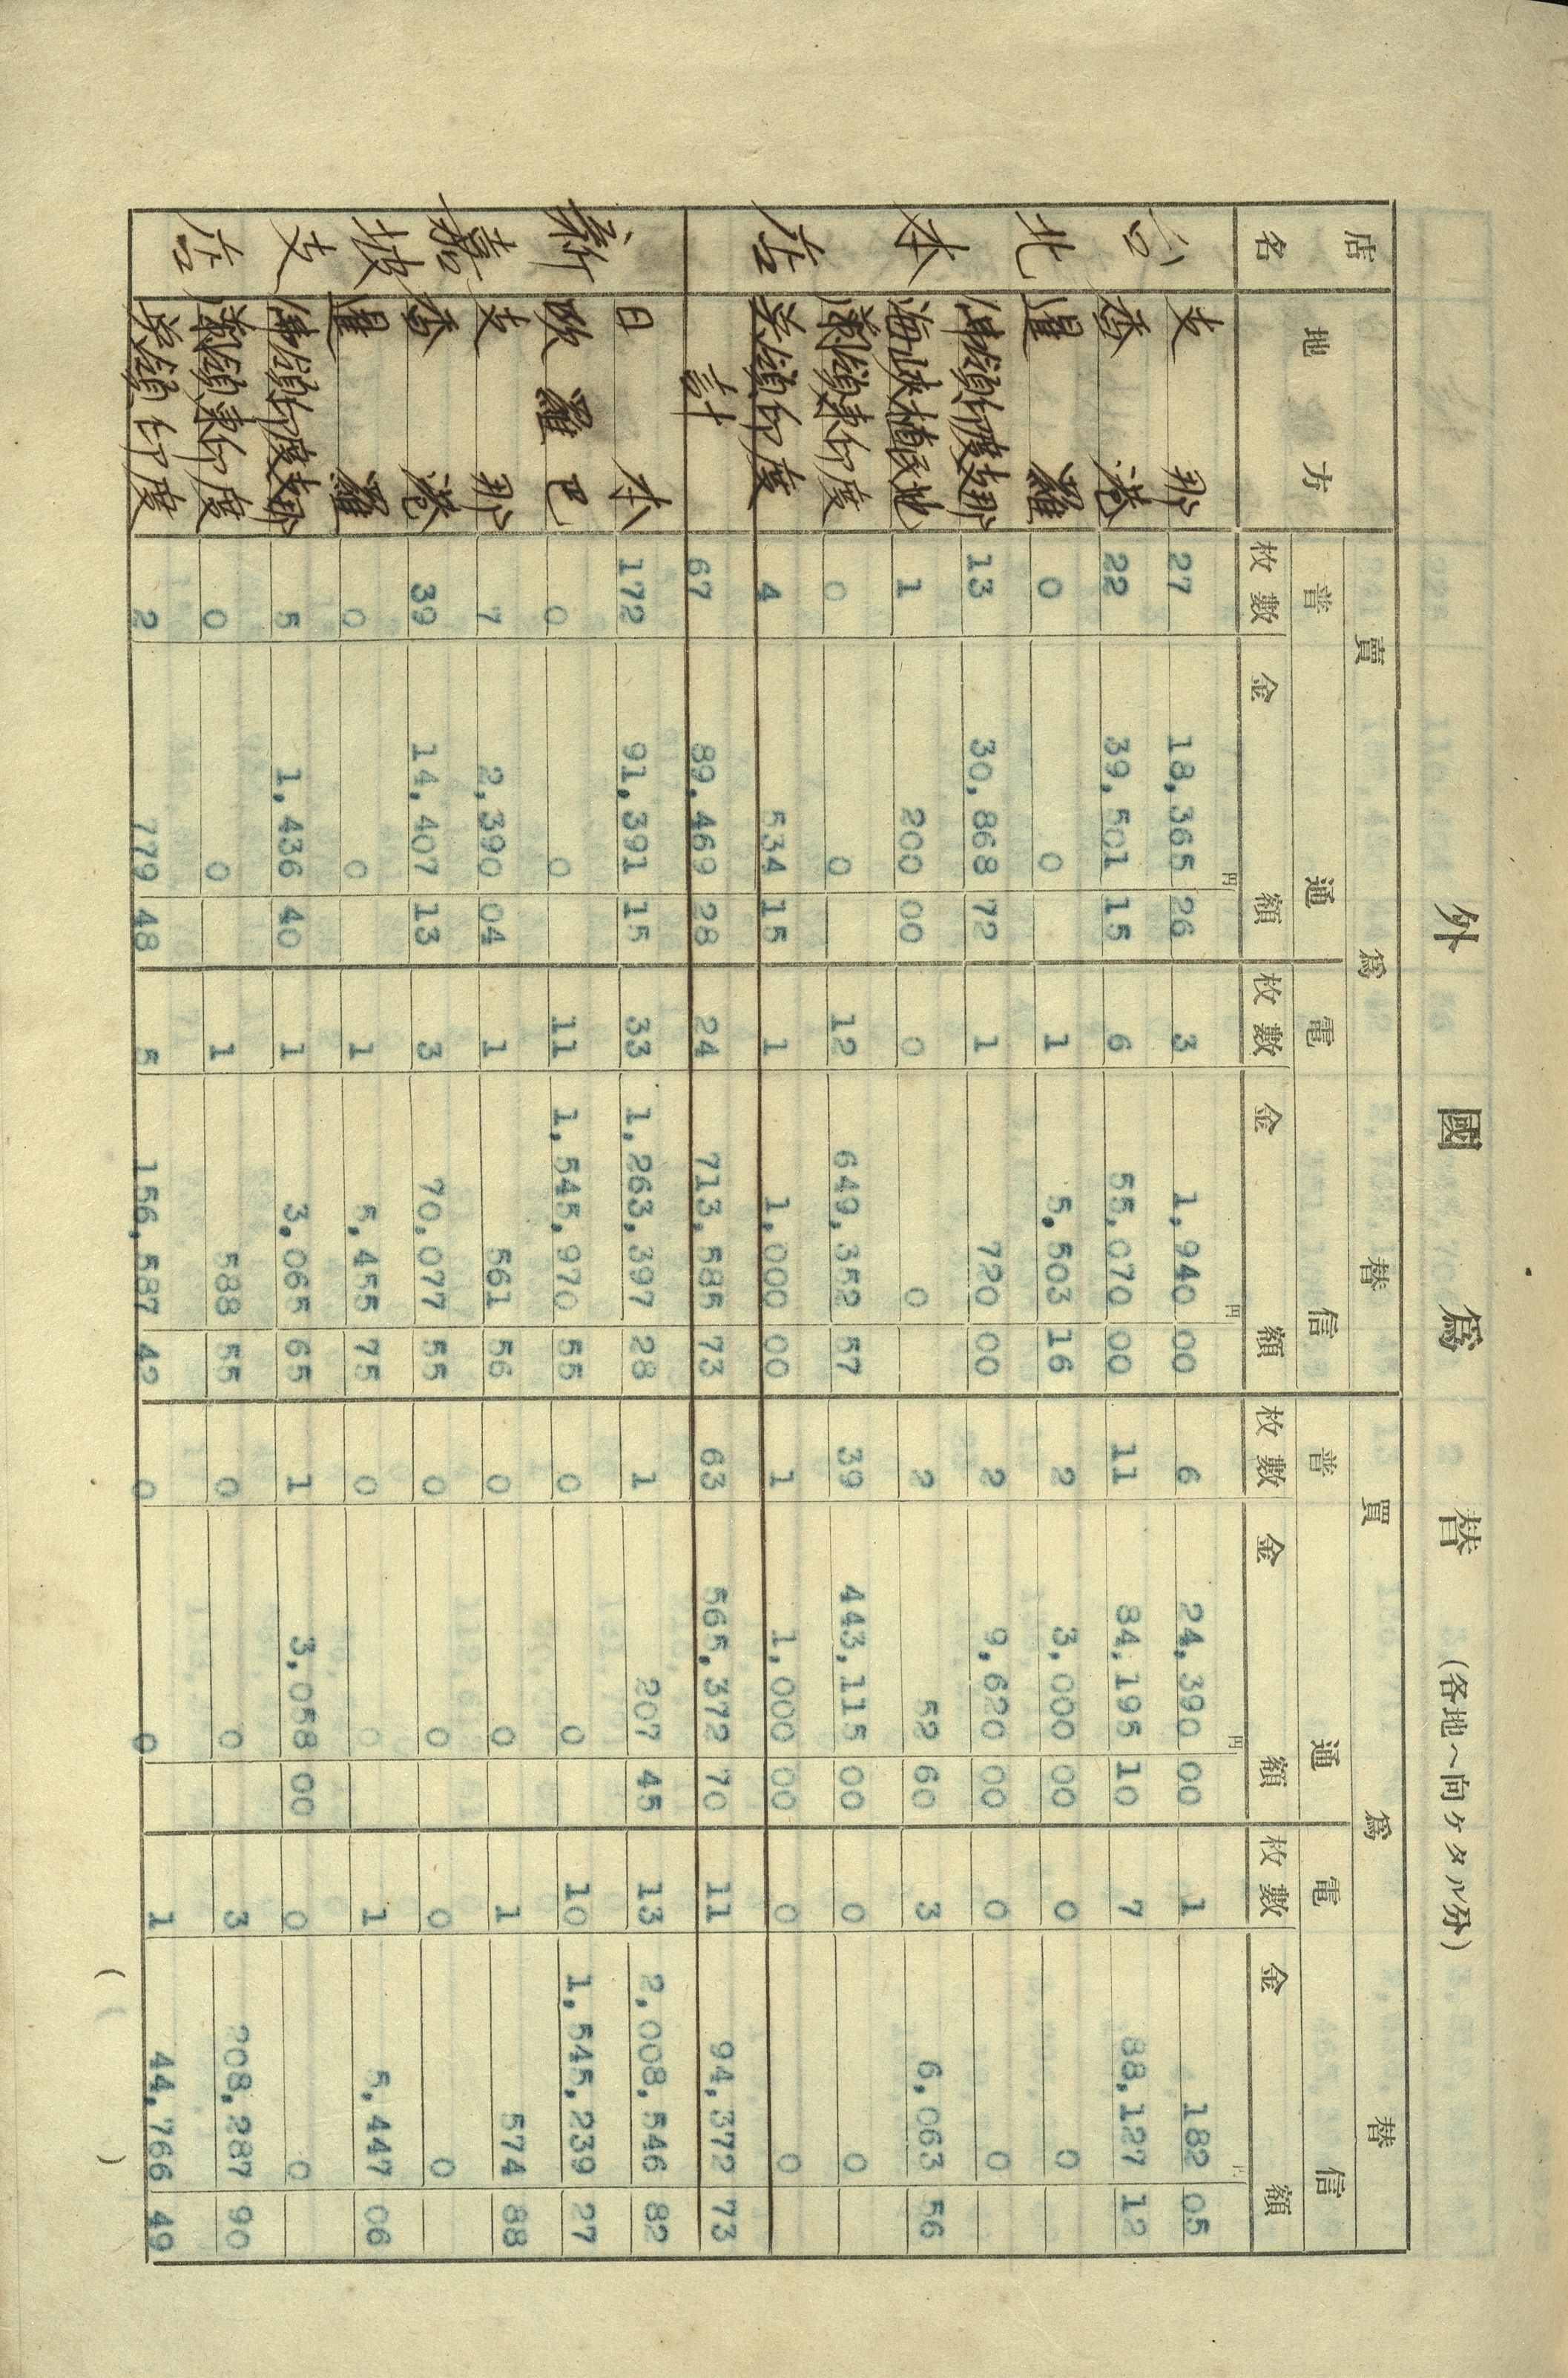 外國爲替 (各地ヘ向ケタル分)
店名 地方 賣爲替 買爲替
普通 電信 普通 電信
枚數 金額 枚數 金額 枚數 金額 枚數 金額
円 円 円 円
台北本店
支那 27 18,365 26 3 1,940 00 6 24,390 00 1 182 05
香港 22 39,501 15 6 55,070 00 11 84,195 10 7 88,127 12
暹羅 0 0 1 5,503 16 2 3,000 00 0 0
佛領印度支那 13 30,868 72 1 720 00 2 9,620 00 0 0
海峽植民地 1 200 00 0 0 2 52 60 3 6,063 56
蘭領東印度 0 0 12 649,352 57 39 443,115 00 0 0
英領印度 4 534 15 1 1,000 00 1 1,000 00 0 0
計 67 89,469 28 24 713,585 73 63 565,372 70 11 94,372 73
新嘉坡支店
日本 172 91,391 15 33 1,263,397 28 1 207 45 13 2,008,546 82
歐羅巴 0 0 11 1,545,970 55 0 0 10 1,545,239 27
支那 7 2,390 04 1 561 56 0 0 1 574 88
香港 39 14,407 13 3 70,077 55 0 0 0 0
暹羅 0 0 1 5,455 75 0 0 1 5,447 06
佛領印度支那 5 1,436 40 1 3,065 65 1 3,058 00 0 0
蘭領東印度 0 0 1 588 55 0 0 3 208,287 90
英領印度 2 779 48 5 156,587 42 0 0 1 44,766 49
( )